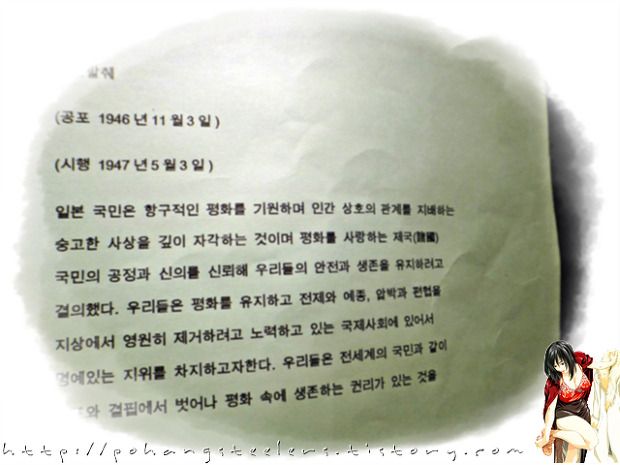 발췌
(공포 1946년 11월 3일)
(시행 1947년 5월 3일)
일본 국민은 항구적인 평화를 기원하며 인간 상호의 관계를 지배하는
숭고한 사상을 깊이 자각하는 것이며 평화를 사랑하는 제국(諸國)
국민의 공정과 신의를 신뢰해 우리들의 안전과 생존을 유지하려고
결의했다. 우리들은 평화를 유지하고 전제와 예종, 압박과 편협을
지상에서 영원히 제거하려고 노력하고 있는 국제사회에 있어서
명예있는 지위를 차지하고자한다. 우리들은 전세계의 국민과 같이
결핍에서 벗어나 평화 속에 생존하는 권리가 있는 것을
http://pohangsteelers.tistory.com